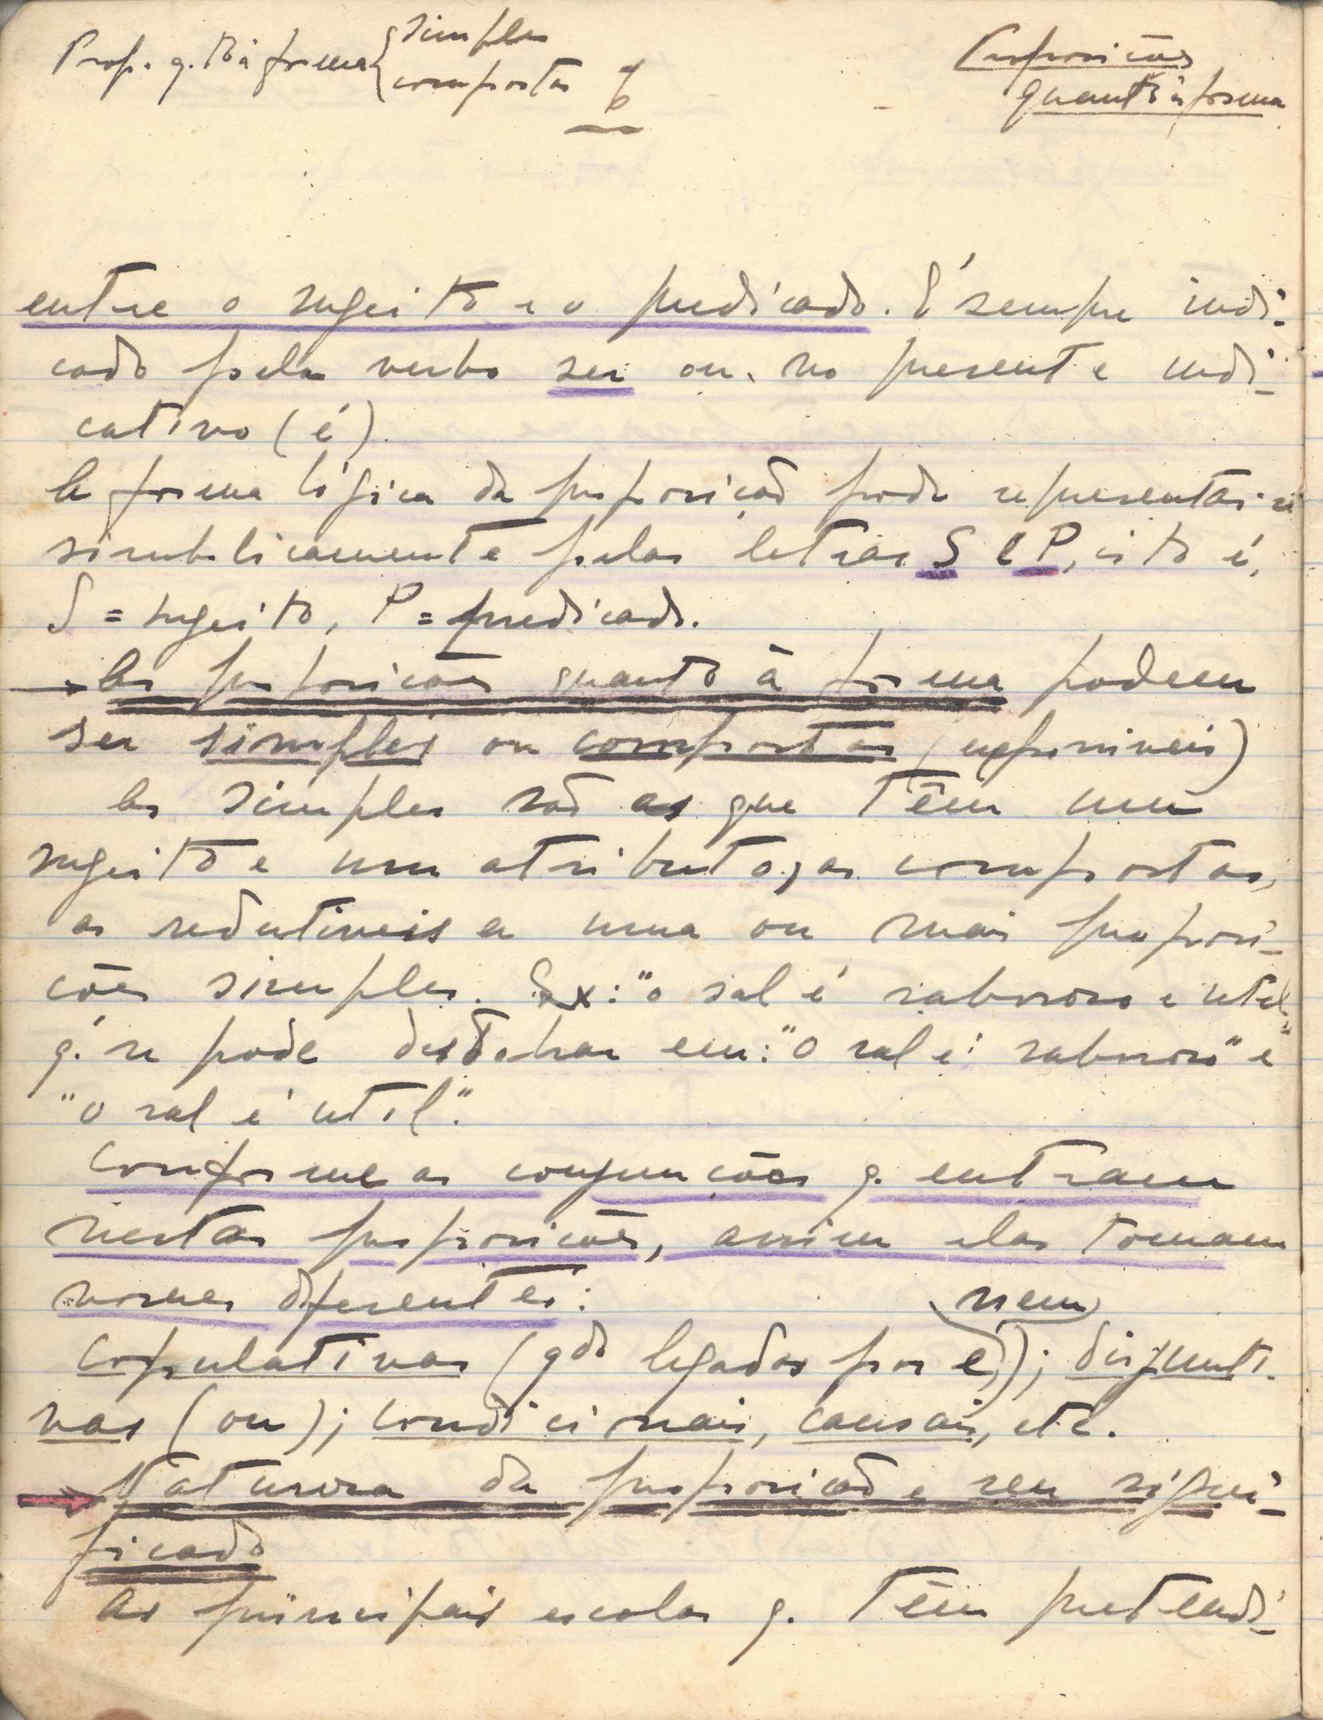 Prop. q. to à forma { simples
compostas
6
Proposições
quanto à forma
entre o sugeito e o predicado. É sempre indi-
cado pelo verbo ser ou no presente indi-
cativo (é).
A forma lógica da proposição pode representar-se
simbolicamente pelas letras S e P, isto é,
S = sugeito, P = predicado.
→ As proposições quanto à forma podem
ser simples ou compostas (exponiveis)
As simples são as que têm um
sugeito e um atributo, as compostas,
as redutiveis a uma ou mais proposi-
ções simples. Ex: "o sal é saboroso e util"
q. se pode desdobrar em: "O sal é saboroso" e
"o sal é util".
Conforme as conjunções q. entram
nestas proposições, assim elas tomam
nomes diferentes:
nem
Copulativas (qdo ligadas por e); disjunti-
vas (ou); condicionais, causais, etc.
→ Natureza da proposição e seu signi-
ficado
As principais escolas q. têm pretendi-